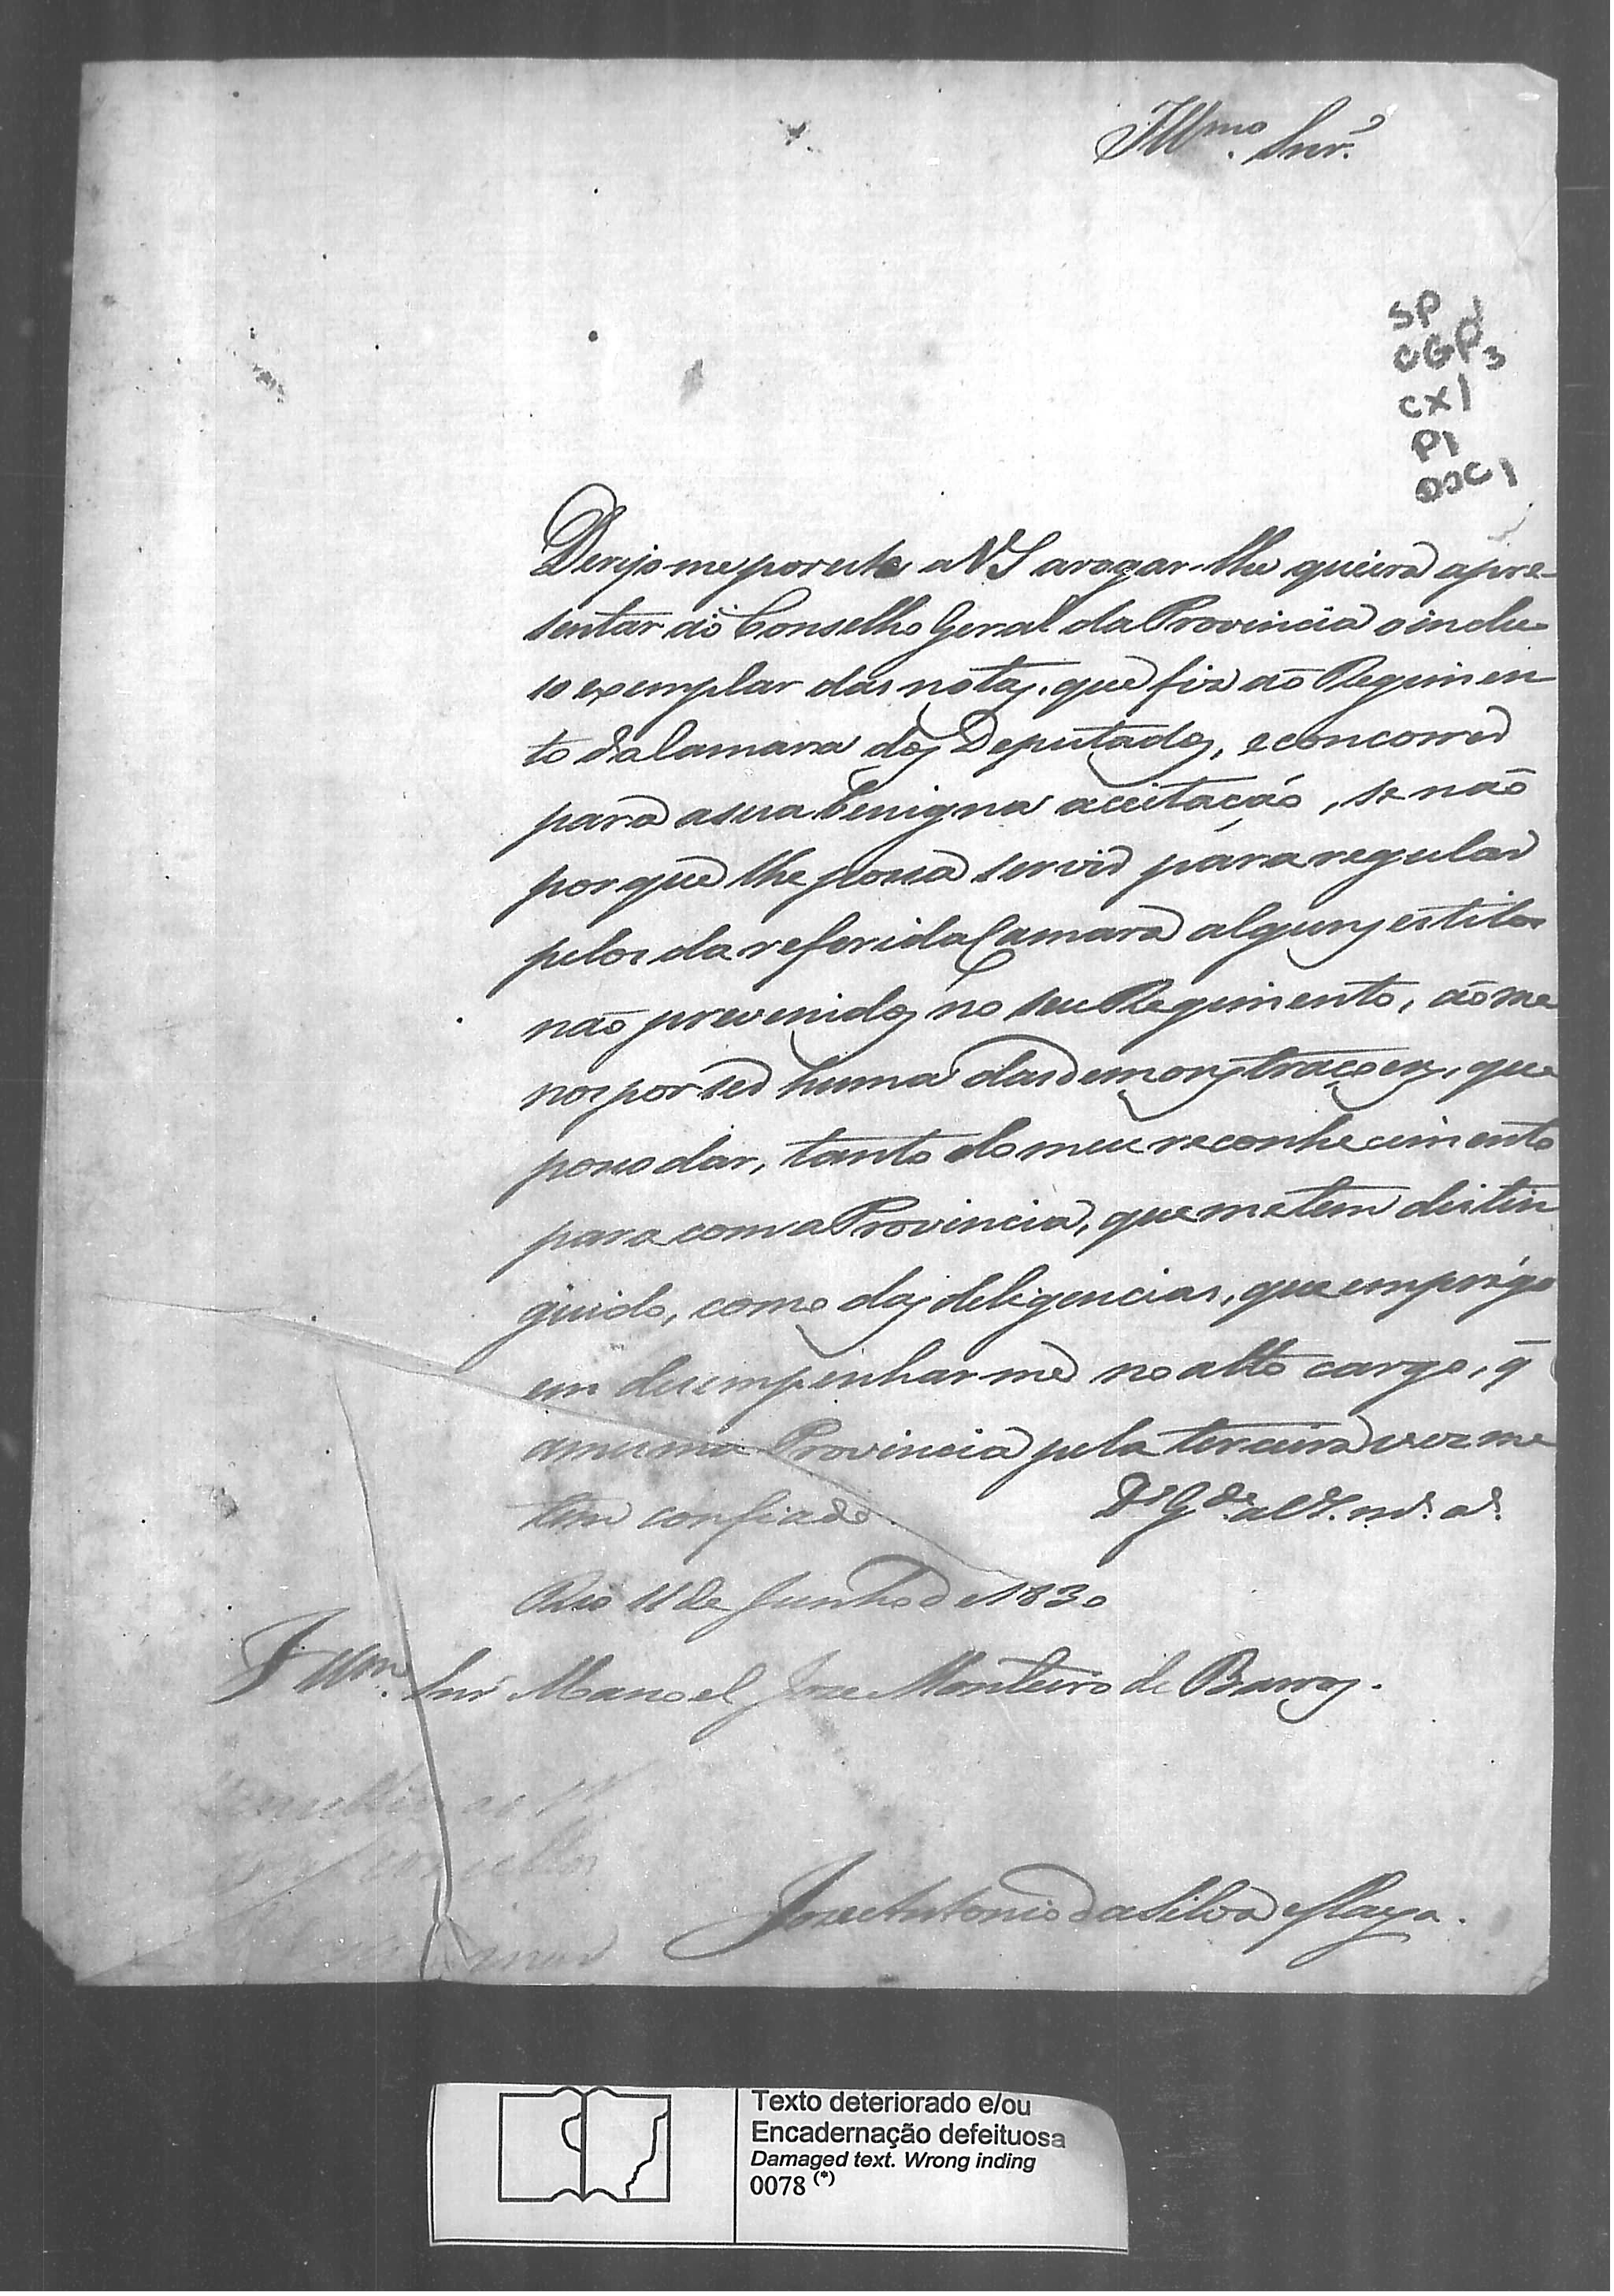 Illmo. Snr.
SP
CGP 3
CX1
P1
DOC1
Derijo me por este a VS a rogar-lhe queira apre-
sentar aõ Conselho Geral da Provincia o inclu-
so exemplar das notas, que fiz aõ Regimen
to da Camara dos Deputados, e concorrer
para a sua benigna aceitação, se não
por que lhe possa servir para regular
pelos da referida Camara alguns estilos
não prevenidos no seu Regimento, aõ me
nos por ser huma das demonstraçoens, que
posso dar, tanto do meu reconhecimento
para com a Provincia, que me tem distin
guido, como das deligencias, que emprégo
em desempenhar me no alto cargo, q̃
a mesma Provincia pela terceira vez me
tem confiado.
Ds. Gde. a VS. ms. as.
Rio 11 de Junho de 1830
Illmo. Snr Manoel Joze Monteiro de Barros.
Joze Antonio da Silva Maya.
Texto deteriorado e/ou
Encadernação defeituosa
Damaged text. Wrong inding
0078 (*)